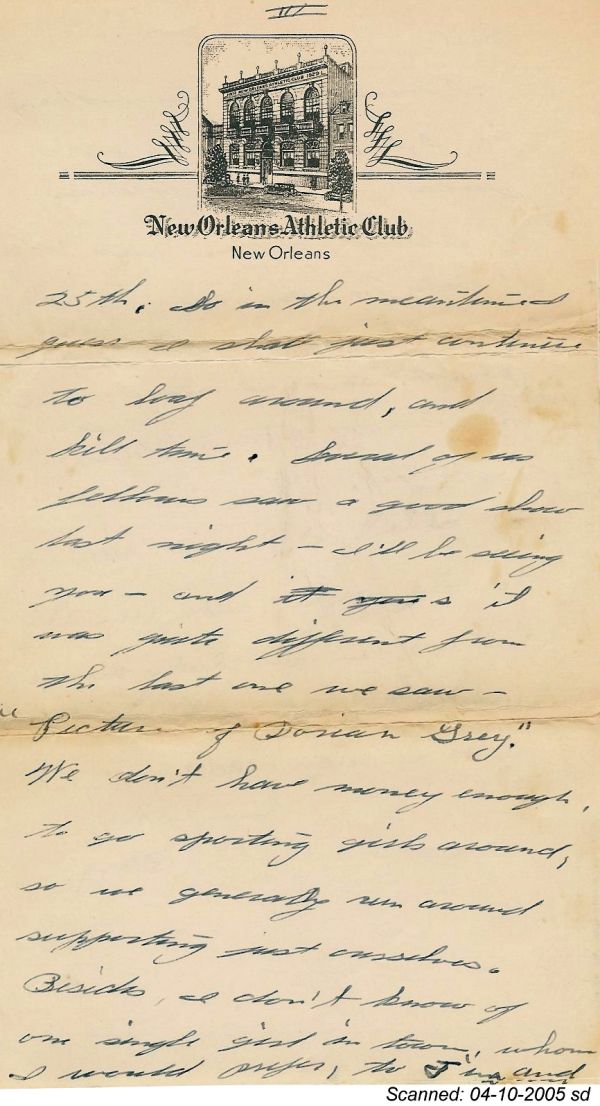 III
NEW ORLEANS ATHLETIC CLUB 1929
New Orleans Athletic Club
New Orleans
25th. So in the meantime I
guess I shall just continue
to loaf around, and
kill time. Several of us
fellows saw a good show
last night – I'll be seeing
you – and it
was quite different from
the last one we saw –
Picture of Dorian Grey."
We don't have money enough,
to go sporting girls around,
so we generally run around
supporting just ourselves.
Besides, I don't know of
one single girl in town, whom
I would prefer, to and
Scanned: 04-10-2005 sd